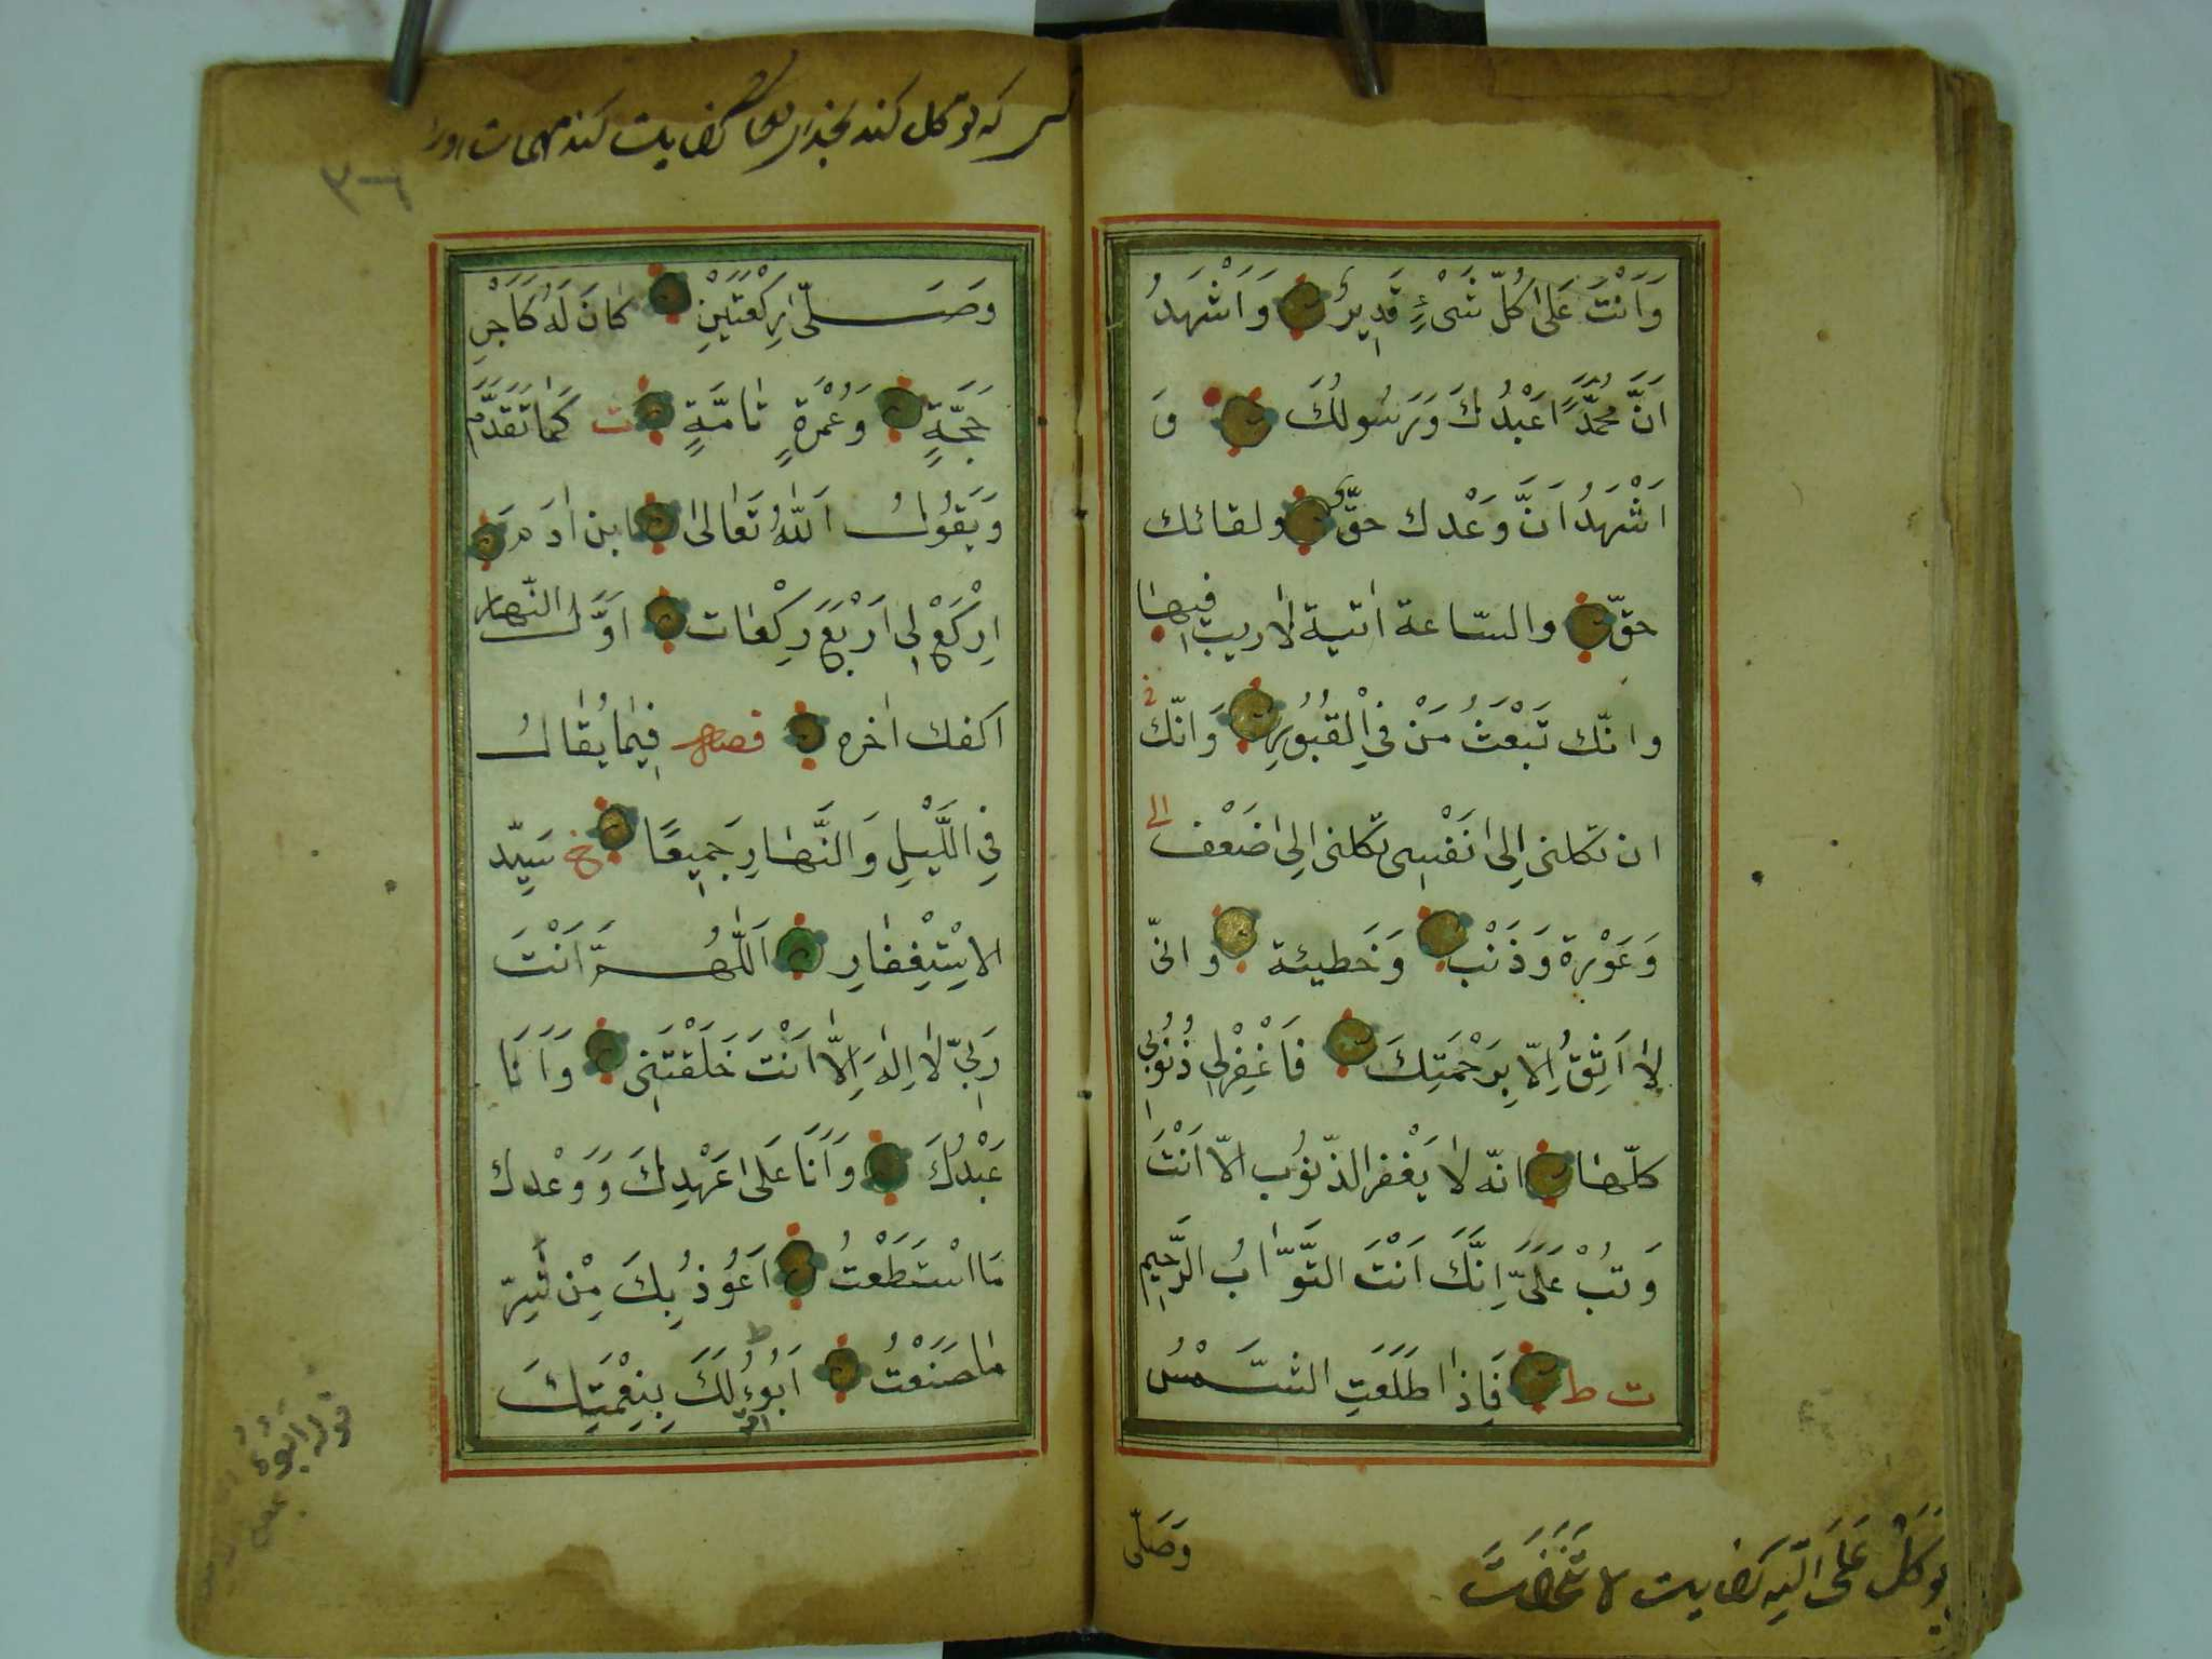 وَاَنْتَ عَلىٰ كُلِّ شَىْءٍ قَدِيرٌ وَاَشْهَدُ
اَنَّ مُحَمَّدًا عَبْدُكَ وَرَسُولُكَ وَ
اَشْهَدُ اَنَّ وَعْدك حقّ ولقائك
حقّ والسّاعة اٰتية لا ريب فيها
وانّك تَبْعَثُ مَنْ فِي الْقُبُورِ وَانّك
ان تكلنى اِلىٰ نَفْسِى تكلنى اِلىٰ ضَعْف
وَعَوْرة وَذَنْب وَخَطيئة وانّى
لا اَثِقُ اِلّا بِرَحْمَتِكَ فَاغْفِرْلِى ذُنُوبِى
كلّها انّه لا يَغْفر الذّنُوب الّا اَنْتَ
وَتُبْ عَلَىَّ اِنَّكَ اَنْتَ التَّوَّابُ الرَّحِيم
ت ط فَاِذٰا طَلَعَتِ الشَّمْسُ
وَصَلّى
كه توكل كند كفايت كند مهمات
٣٦
وصَلّىٰ رَكْعَتَيْنِ كٰانَ لَهُ كَاَجْرِ
حَجَّةٍ وَعُمْرَةٍ تٰامَّةٍ ت كَمٰا تَقَدَّمَ
وَيَقُولُ اَللّٰهُ تَعٰالىٰ ابن اٰدَمَ
اِرْكَعْ لِى اَرْبَعَ رَكْعٰات اَوَّل النّهار
اكفك اٰخره فصل فِيمٰا يُقٰالُ
فِى اللَّيْلِ وَالنَّهٰارِ جَمِيعًا خ سَيِّد
الاِسْتِغْفٰارِ اَللّٰهُمَّ اَنْتَ
رَبِّى لا اِلٰهَ اِلّا اَنْتَ خَلَقْتَنِى وَاَنَا
عَبْدُكَ وَاَنَا عَلىٰ عَهْدِكَ وَوَعْدك
مَا اسْتَطَعْتُ اَعُوذُ بِكَ مِنْ شَرِّ
مٰا صَنَعْتُ اَبُوءُ لَكَ بِنِعْمَتِكَ